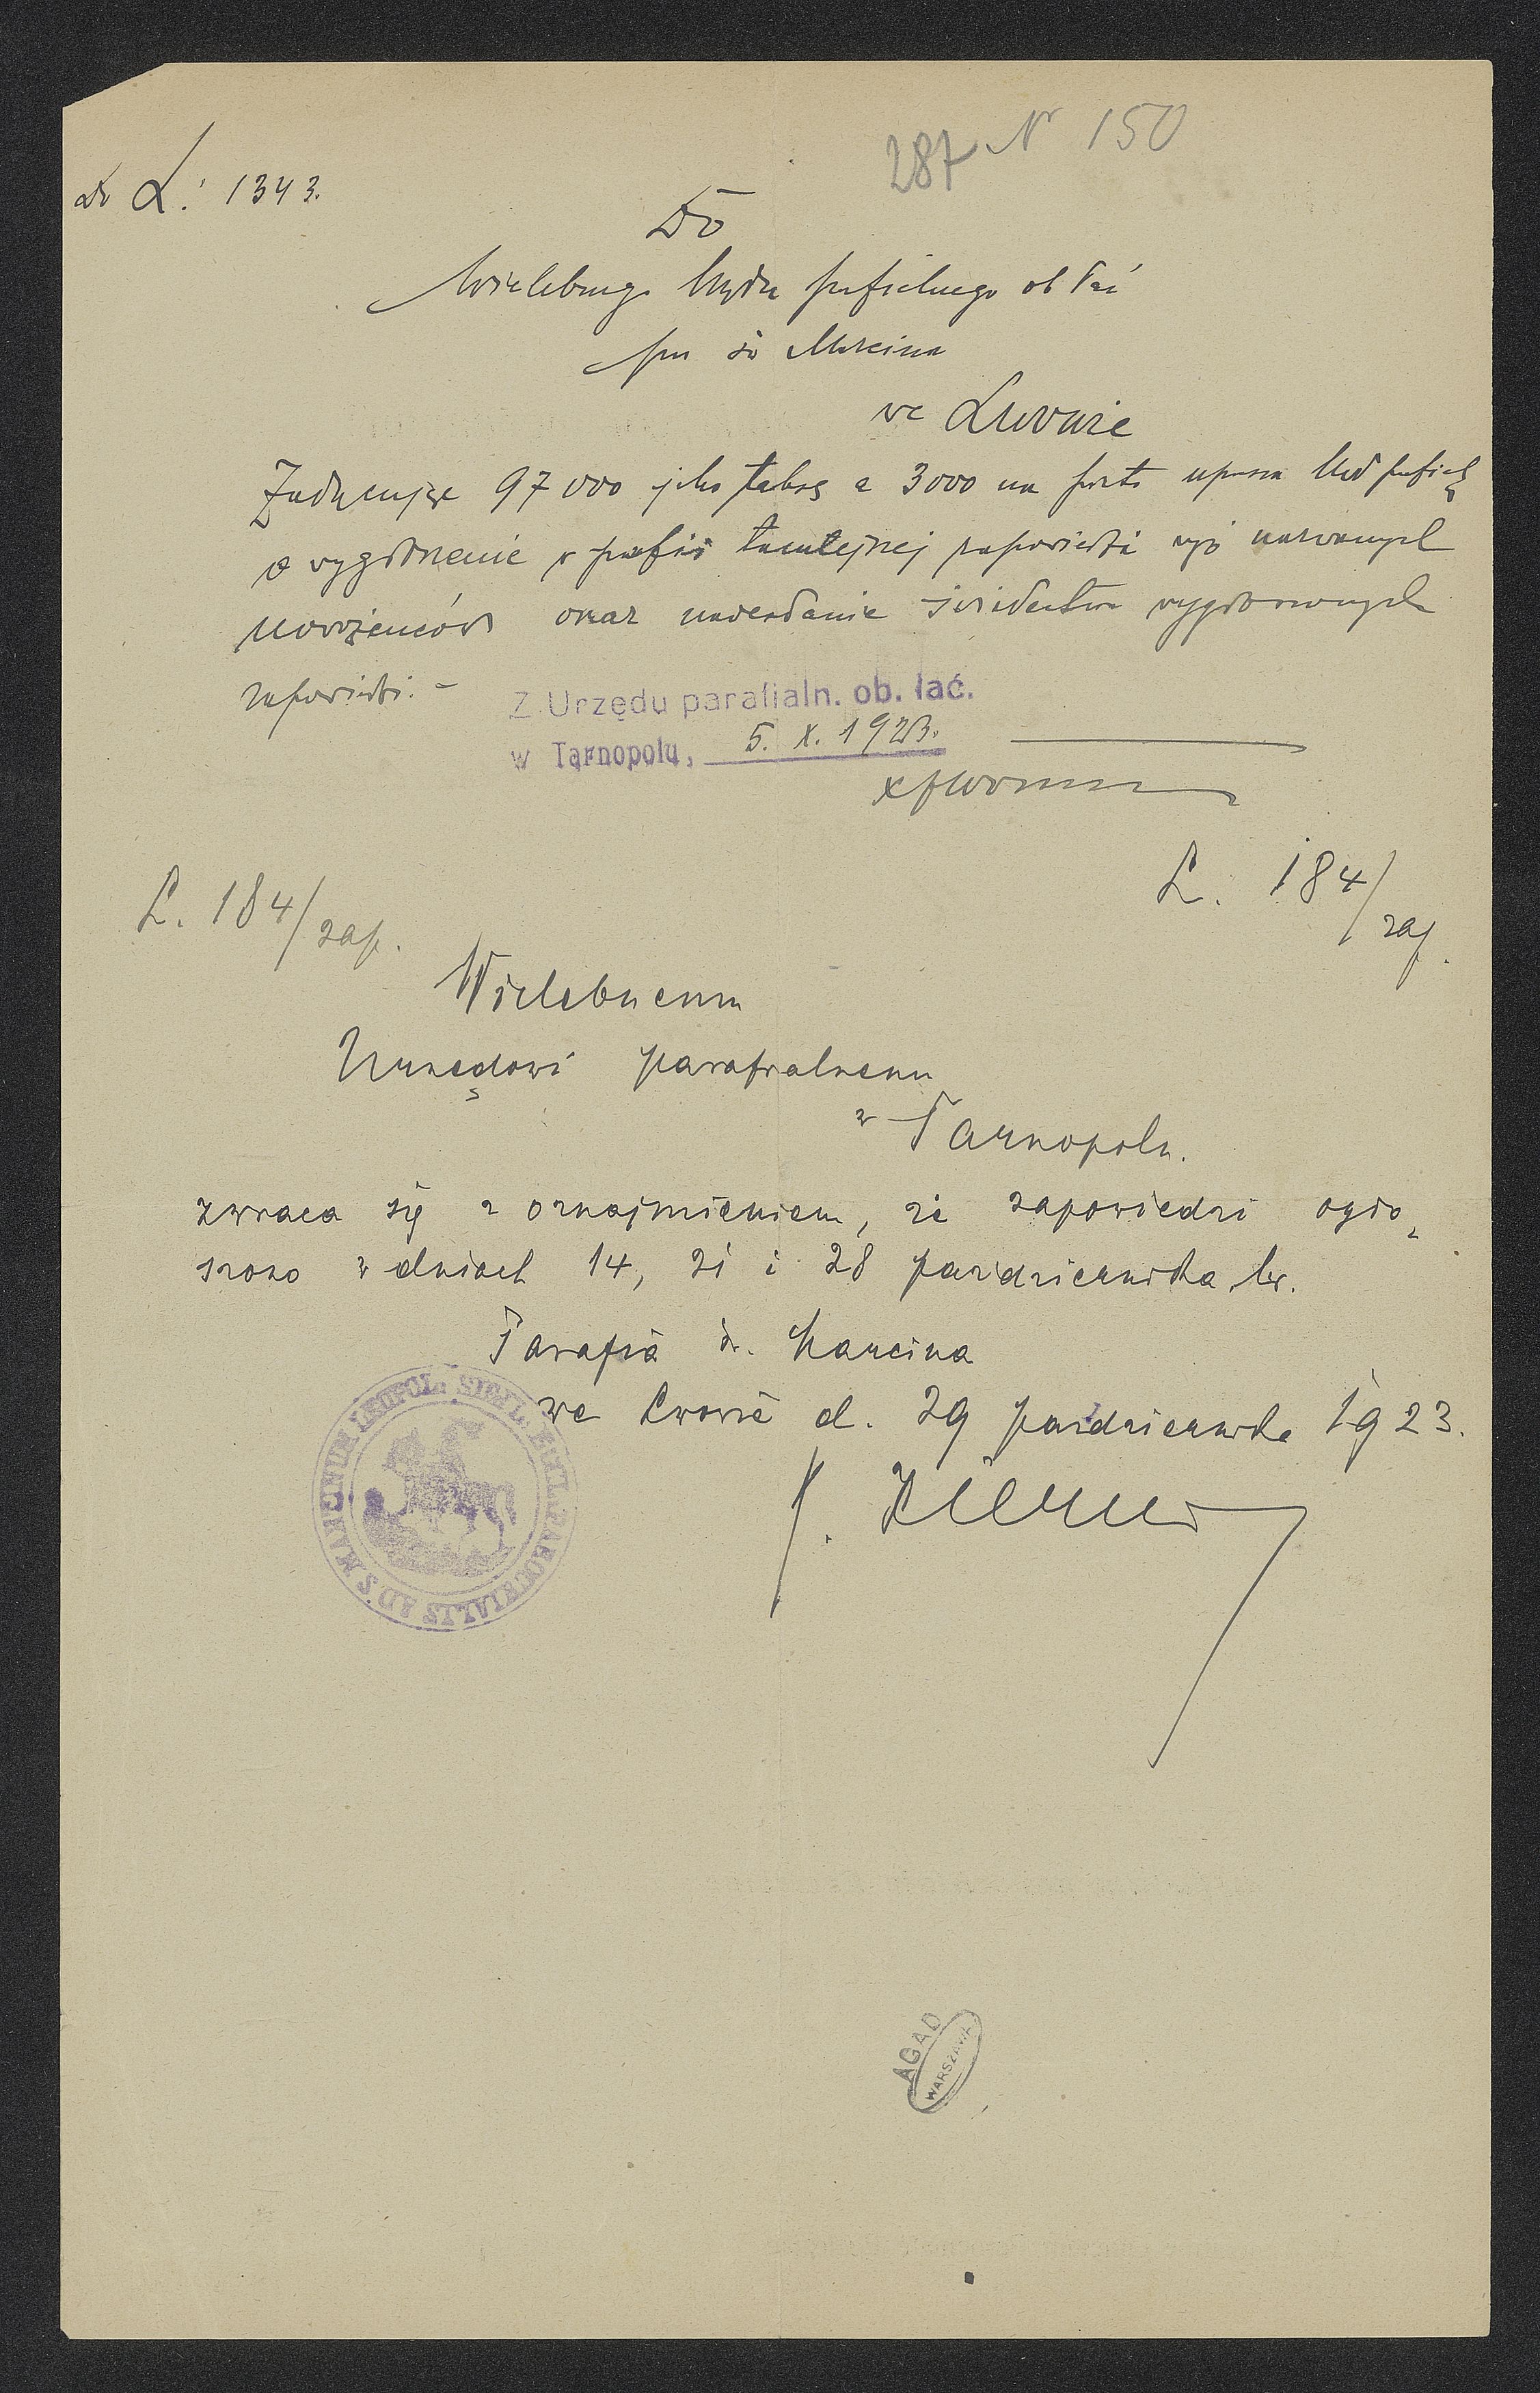 287 Nr 150
do L: 1343.
Do
Wielebnego Urzędu parafialnego ob łać
pw św Marcina
we Lwowie
Załączając 97000 jako taksę a 3000 na porto uprasza Urząd parafialny
o wygłoszenie w parafii tamtejszej zapowiedzi wyż nazwanych
narzeczonych oraz nadesłanie świadectwa wygłoszonych
zapowiedzi. -
Z Urzędu parafialn. ob. łać.
w Tarnopolu, 5. X. 1923.
L. 184/zap.
L. 184/zap.
Wielebnemu
Urzędowi parafialnemu
w Tarnopolu.
zwraca się z oznajmieniem, że zapowiedzi ogło-
szono w dniach 14, 21 i 28 października br.
Parafia św. Marcina
we Lwowie d. 29 października 1923.
SIGILL. PAROCHIALIS AD S. MARCINUM LEOPOL.
AGAD
WARSZAWA